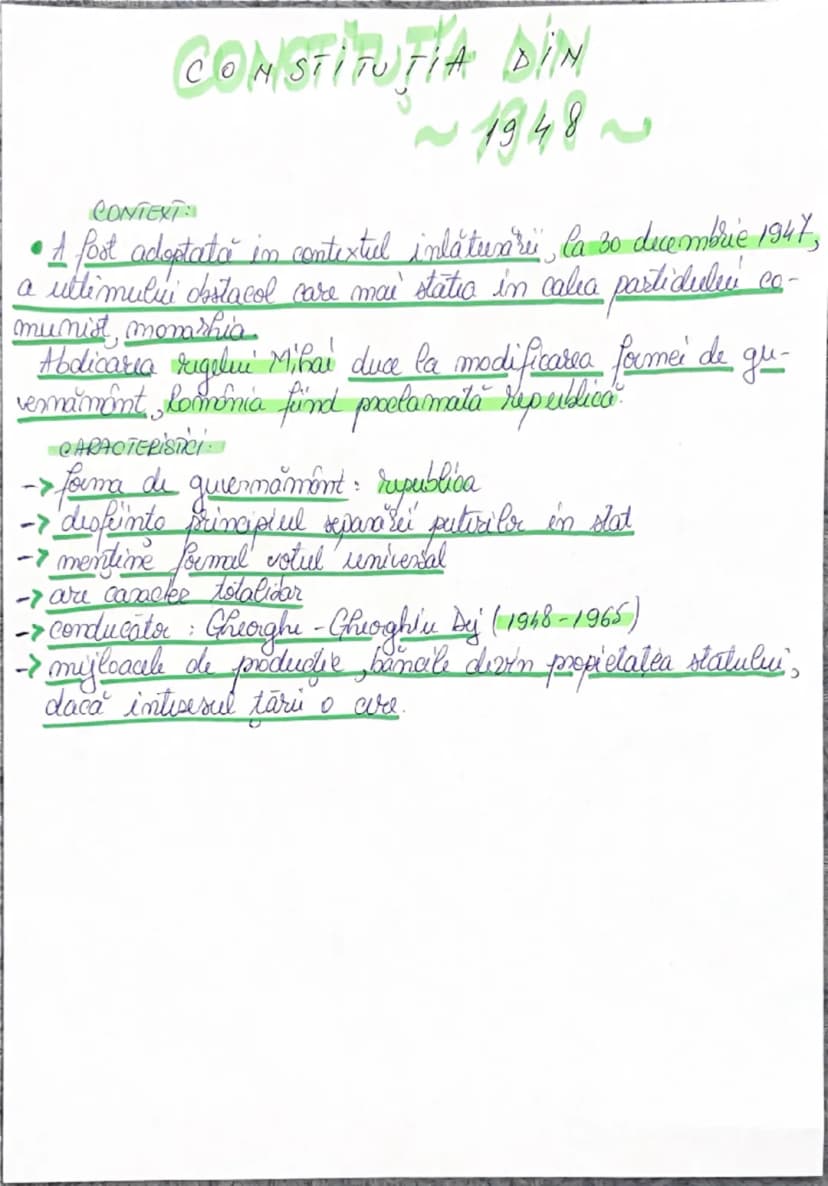 CONSTITUȚIA DIN
~ 1948 ~
CONTEXT:
• A fost adoptată în contextul înlăturării, la 30 decembrie 1947,
a ultimului obstacol care mai stătea în calea partidului co-
munist, monarhia.
Abdicarea regelui Mihai duce la modificarea formei de gu-
vernământ, România fiind proclamată republică.
CARACTERISTICI:
-> forma de guvernământ: republica
-> desființa principiul separării puterilor în stat
-> menține formal votul universal
-> are caracter totalitar
-> conducător : Gheorghe - Gheorghiu Dej (1948-1965)
-> mijloacele de producție, băncile devin propietatea statului,
dacă interesul țării o cere.